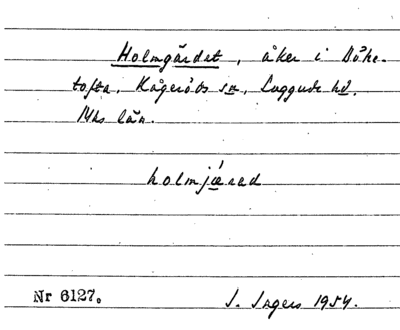 Holmgärdet, åker i Böke-
tofta, Kågeröds sn, Luggude hd.
Mhs län.
holmjærad
Nr 6127.
J. Ingers 1954.